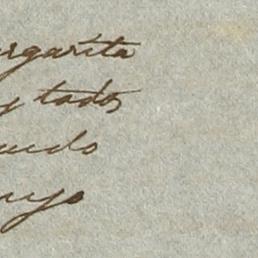 argarita
y todos
uedo
suyo